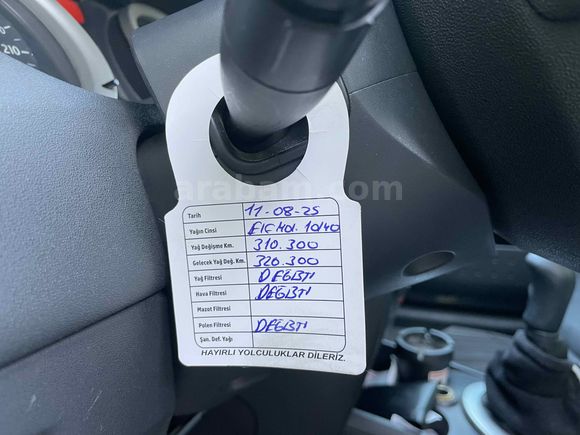 210
arabam.com
Tarih 11-08-25
Yağın Cinsi 10/40
Yağ Değişme Km. 310.300
Gelecek Yağ Değ. Km. 320.300
Yağ Filtresi DEĞİŞTİ
Hava Filtresi DEĞİŞTİ
Mazot Filtresi
Polen Filtresi DEĞİŞTİ
Şan. Def. Yağı
HAYIRLI YOLCULUKLAR DİLERİZ.